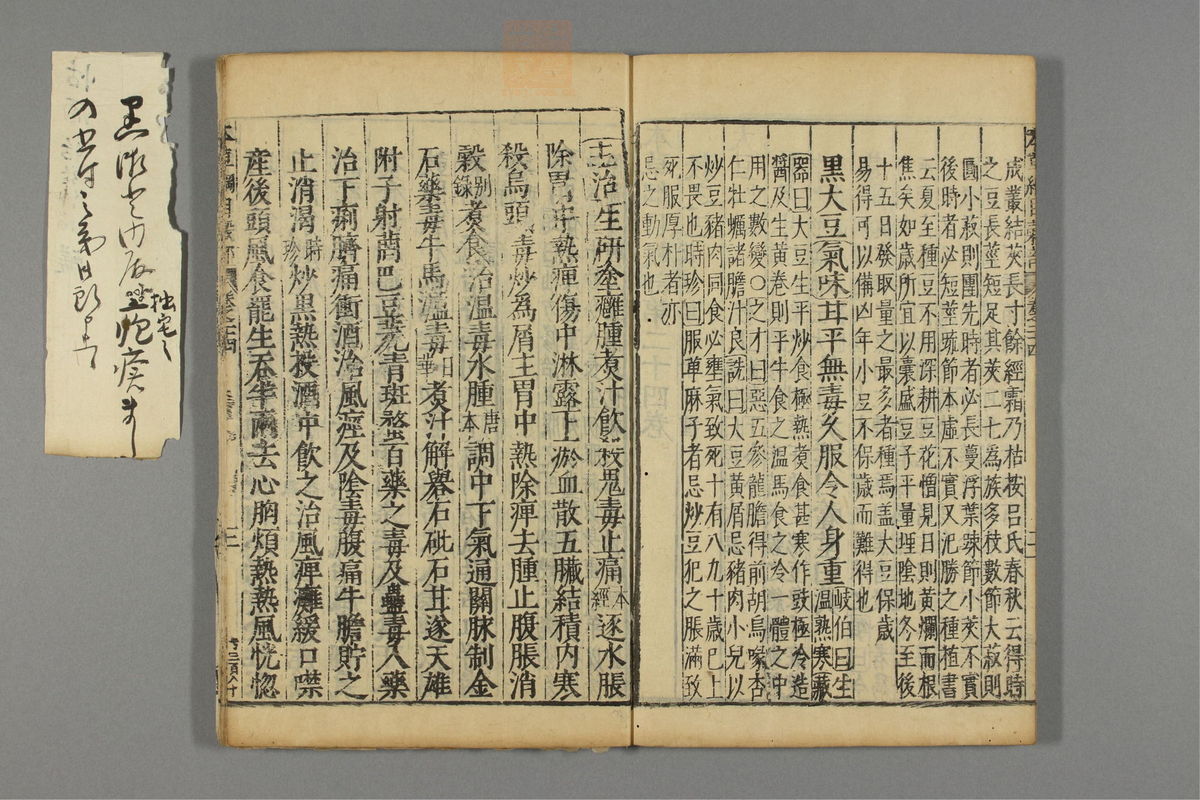 成叢結莢長寸餘經霜乃枯按呂氏春秋云得時
之豆長莖短足其莢二七為族多枝數節大菽則
圓小菽則團先時者必長蔓浮葉疎節小莢不實
後時者必短莖疎節本虛不實又氾勝之種植書
云夏至種豆不用深耕豆花憎見日則黃爛而根
焦矣如歲所宜以囊盛豆子平量埋陰地冬至後
十五日發取量之最多者種焉盖大豆保歲
易得可以備凶年小豆不保歲而難得也
黑大豆氣味甘平無毒久服令人身重岐伯曰生
溫熟寒藏
器曰大豆生平炒食極熱煮食甚寒作豉極冷造
醬及生黃卷則平牛食之溫馬食之冷一體之中
用之數變〇之才曰惡五參龍膽得前胡烏喙杏
仁牡蠣諸膽汁良詵曰大豆黃屑忌豬肉小兒以
炒豆豬肉同食必壅氣致死十有八九十歲已上
不畏也時珍曰服萆麻子者忌炒豆犯之脹滿致
死服厚朴者亦
忌之動氣也
主治生研塗癰腫煮汁飲殺鬼毒止痛本
經逐水脹
除胃中熱痺傷中淋露下瘀血散五臟結積内寒
殺烏頭毒炒為屑主胃中熱除痺去腫止腹脹消
穀別
錄煮食治溫毒水腫唐
本調中下氣通關脉制金
石藥毒牛馬溫毒日
華煮汁解礜石砒石甘遂天雄
附子射䒷巴豆芫青斑蝥百藥之毒及蠱毒入藥
治下痢臍痛衝酒治風痙及陰毒腹痛牛膽貯之
止消渴時
珍炒黑熱投酒中飲之治風痺癱緩口噤
產後頭風食罷生吞半兩去心胸煩熱熱風恍惚
本草綱目穀部 卷之二四